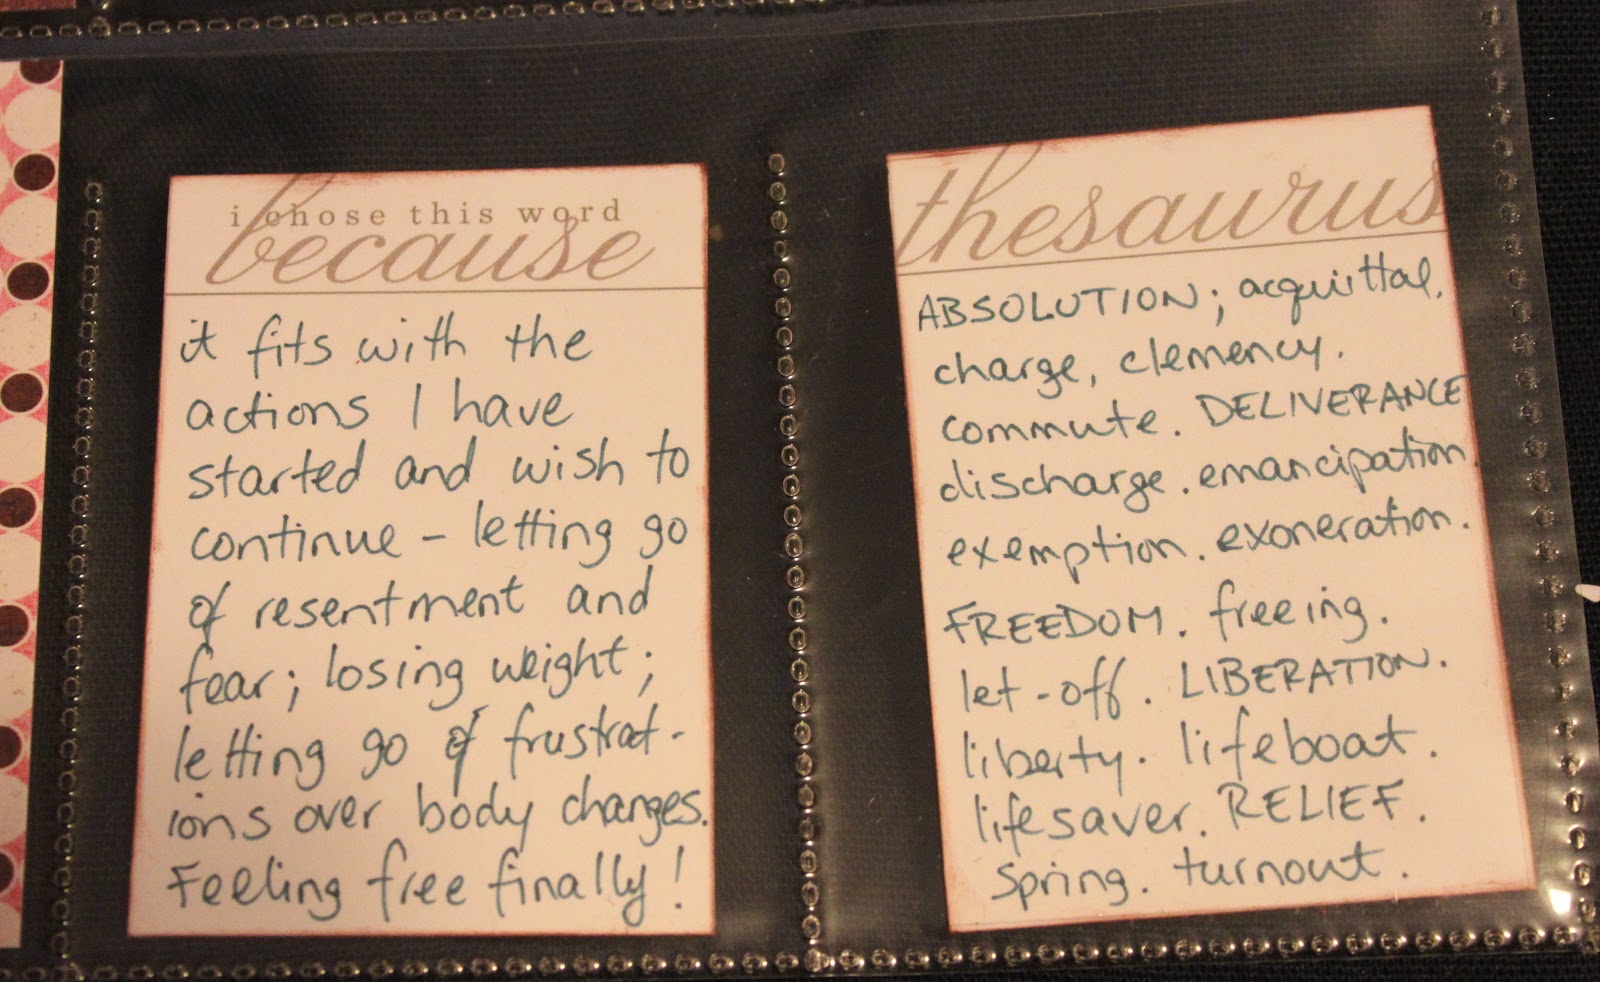 i chose this word
because
it fits with the
actions I have
started and wish to
continue - letting go
of resentment and
fear; losing weight;
letting go of frustrat-
ions over body changes.
Feeling free finally!
thesaurus
ABSOLUTION; acquittal.
charge, clemency.
commute. DELIVERANCE
discharge. emancipation.
exemption. exoneration.
FREEDOM. freeing.
let-off. LIBERATION.
liberty. lifeboat.
lifesaver. RELIEF.
spring. turnout.